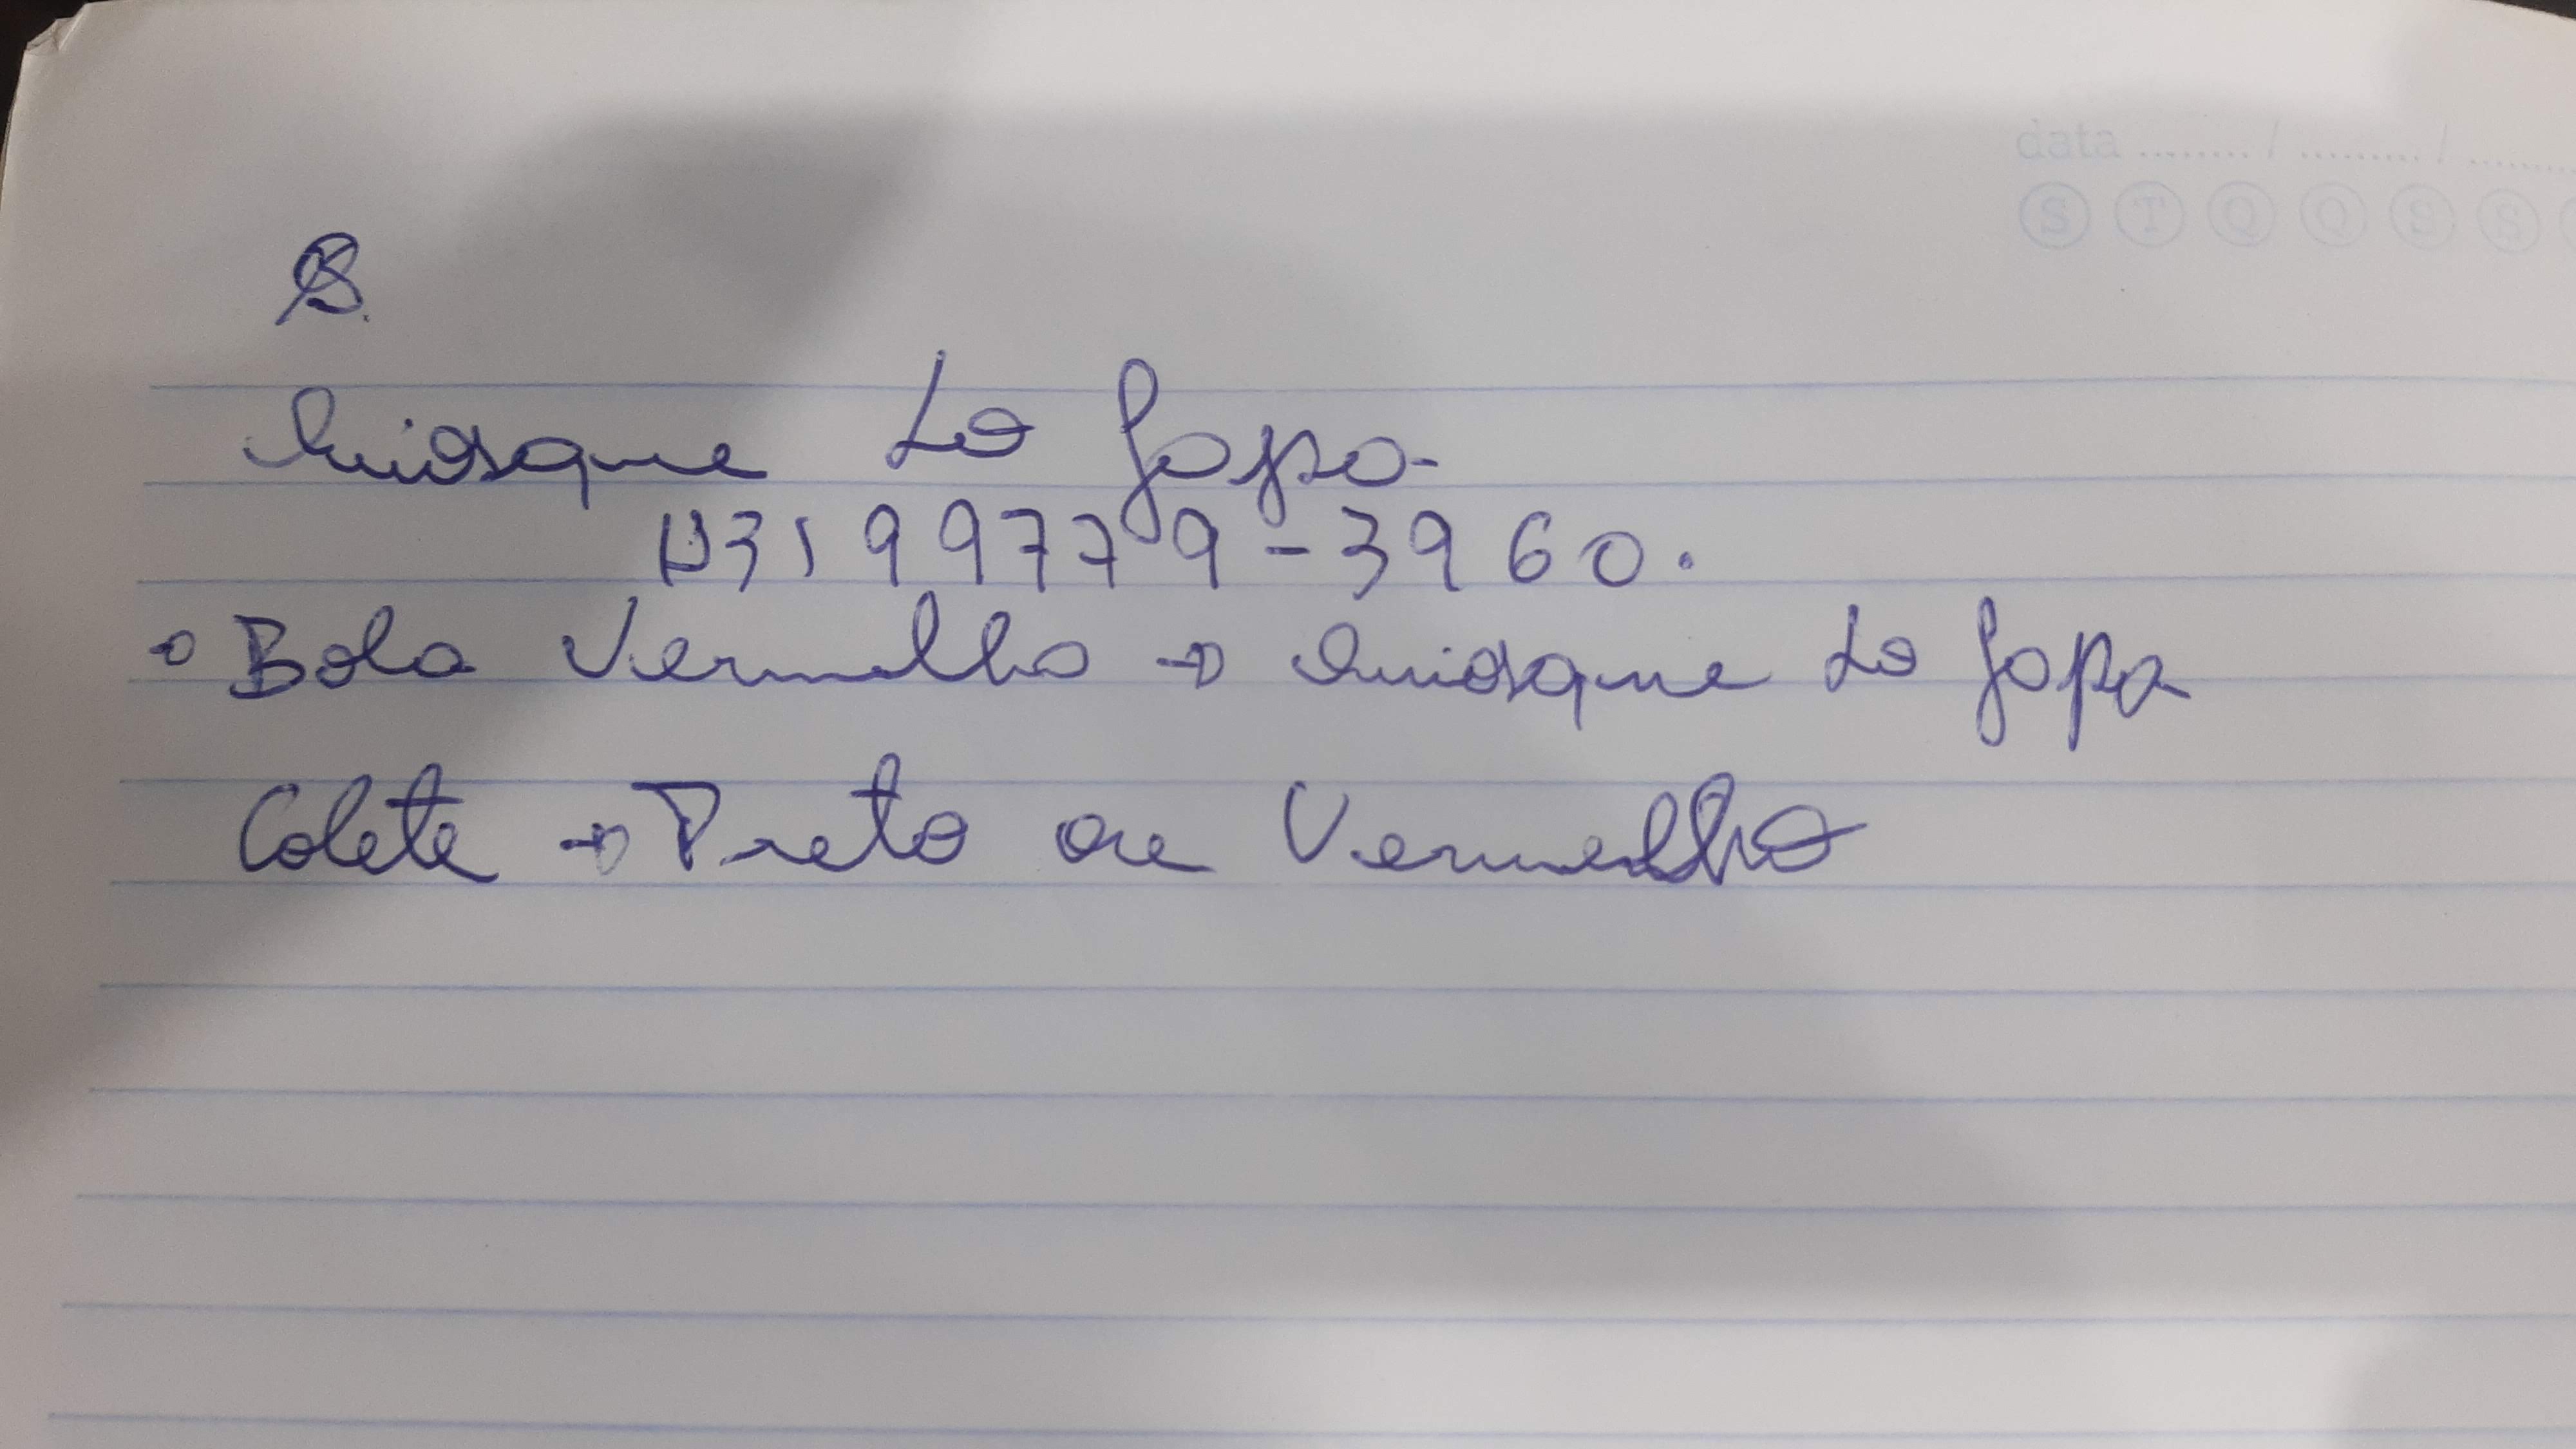 data ........ / ......... / .......
S T Q Q S S
Quiosque Lo Japa
319 9779-3960.
→ Bola Vermelha → Quiosque Lo Japa
Colete → Preto ou Vermelho